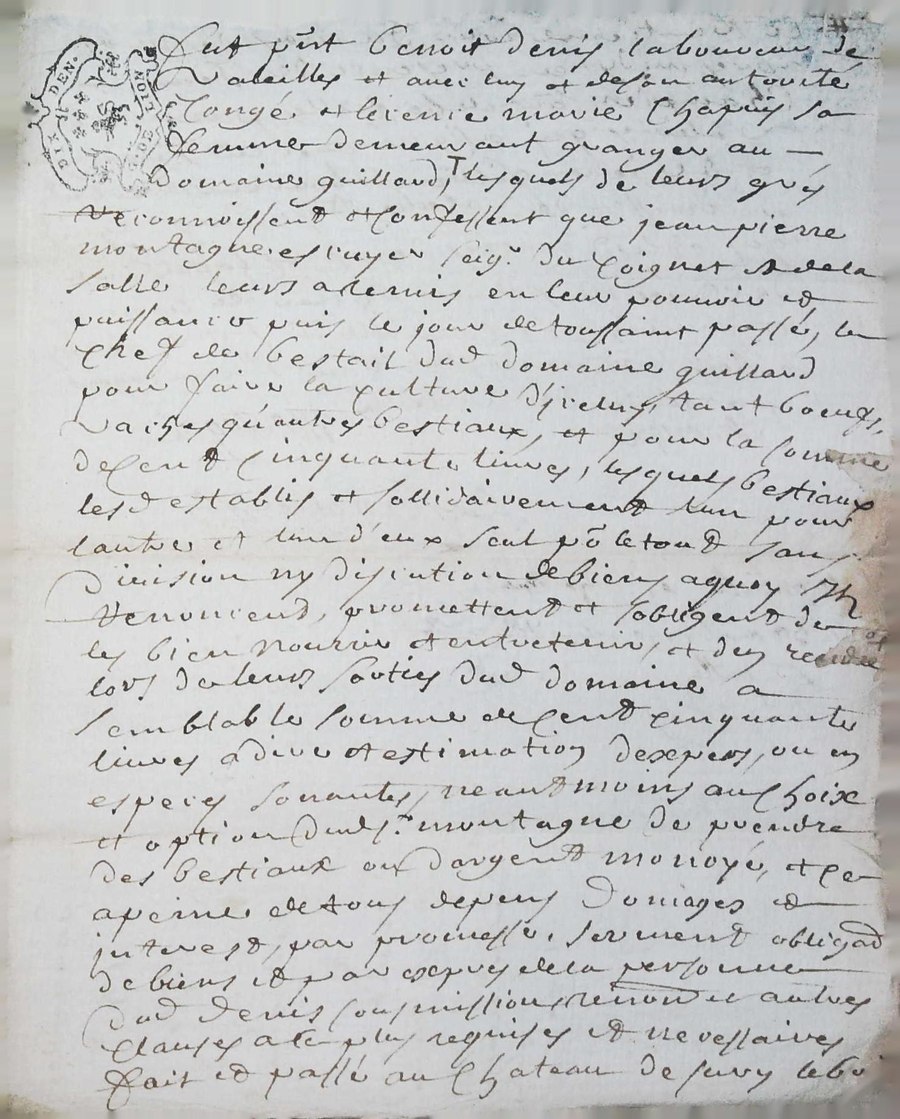 DIX DEN. LION DE
fut pnt benoit denis laboureur de
Valeilles et avec luy et de son autorité
Congé et licence marie Chapuis sa
femme demeurant granger au —
Domaine guillard, lesquels de leurs grés
reconnoissent et Confessent que jean pierre
montagne escuyer seigr. du poignet & dela
salle leurs a remis en leur pouvoir et
puissance puis le jour de toussaint passé, le
Chef de bestail dud domaine guillard
pour faire la Culture d'jceluy, tant boeufs,
Vaches qu'autres bestiaux, et pour la somme
de Cent Cinquante livres, lesquels bestiaux
lesd establis et sollidairement l'un pour
lautre et l'un d'eux seul po le tout sans
Division ny discution de biens a quoy ils
Renoncend, promettent et sobligent de
les bien nourrir et entretenir, et d'en rendre
lors de leurs sorties dud domaine a
semblable somme de Cent Cinquante
livres a dire et estimation dexpers, ou en
especes sonantes, neantmoins au Choix
et option dud sr. montagne de prendre
des bestiaux ou dargent monoyé, et ce
a peine de tous depens Domages et
interest, par promesse, serment obligaon
de biens et par expres de la personne
dud denis soumissions renon et autres
Clauses a ce plus requises et necessaires
fait et passé au Chateau de sury leboi